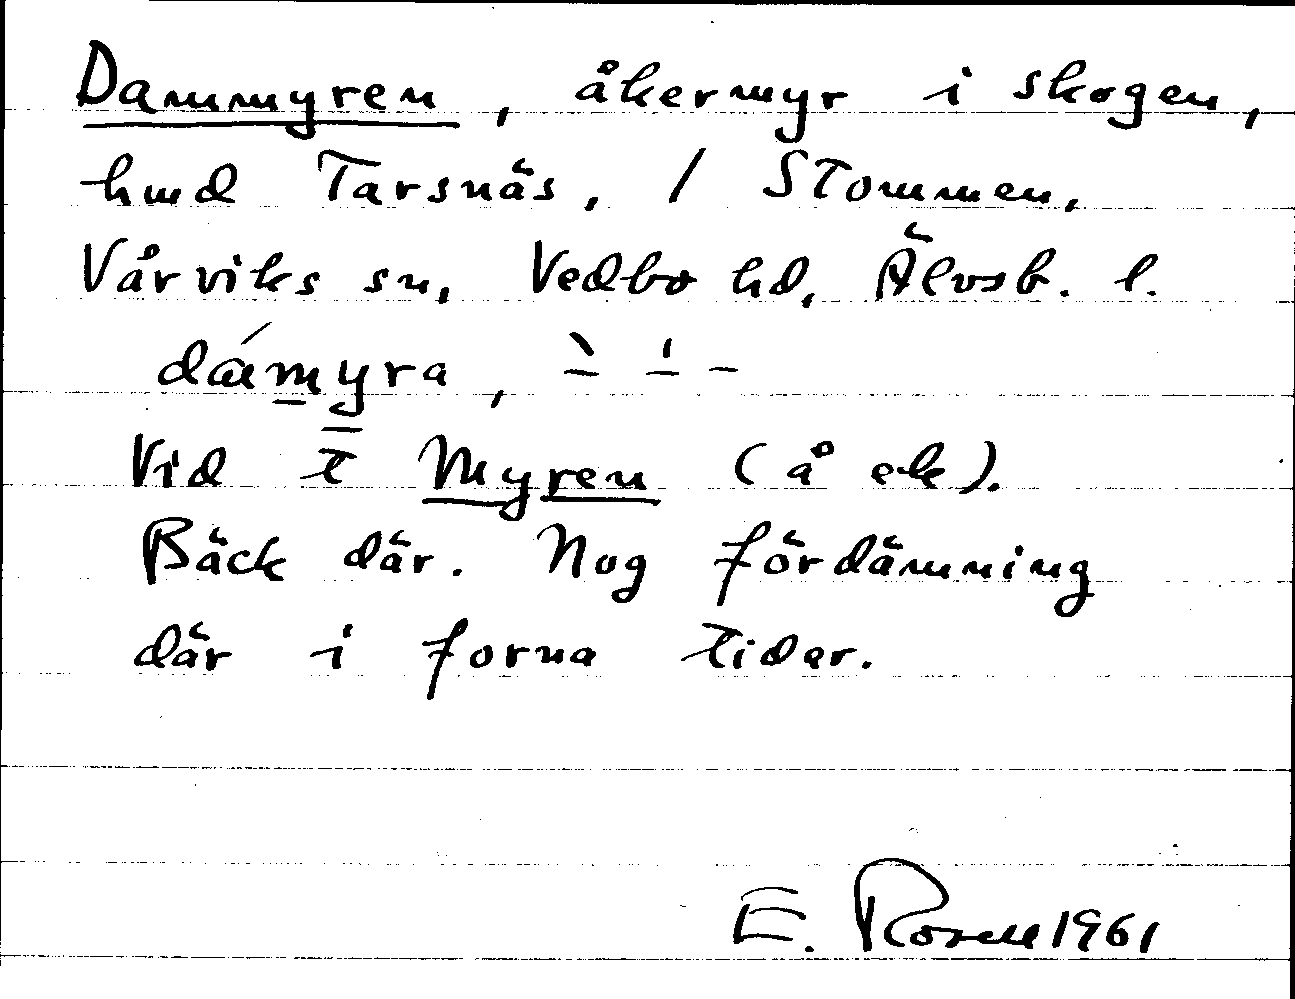 Dammyren, åkermyr i skogen,
hmd Tarsnäs, / Stommen,
Vårviks sn, Vedbo hd, Älvsb. l.
dámyra, ˋ– ˈ– –
Vid t Myren (å ek).
Bäck där. Nog fördämning
där i forna tider.
E. Rosell 1961